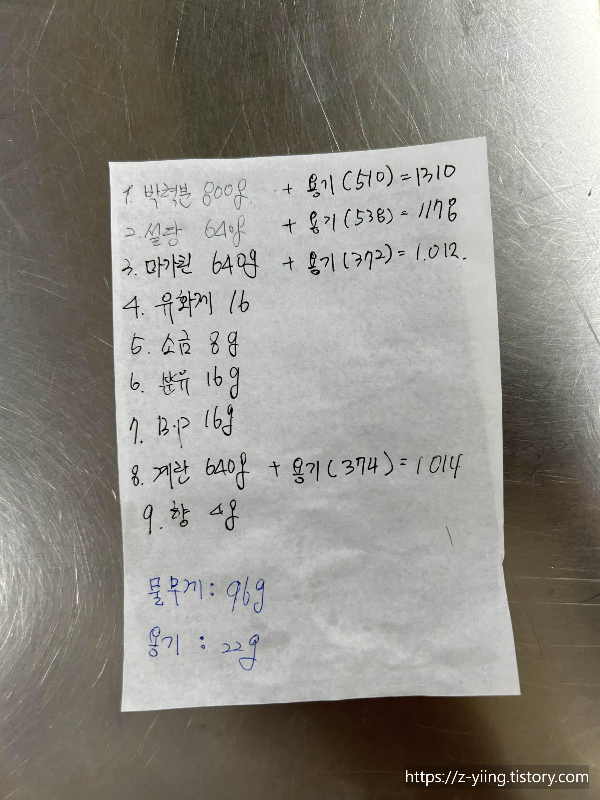 1. 박력분 800g + 용기(510) = 1310
2. 설탕 64g + 용기(538) = 1178
3. 마가린 640g + 용기(372) = 1.012.
4. 유화제 16
5. 소금 8g
6. 분유 16g
7. B.P 16g
8. 계란 640g + 용기(374) = 1014
9. 향 4g
물무게 : 96g
용기 : 22g
https://z-yiing.tistory.com